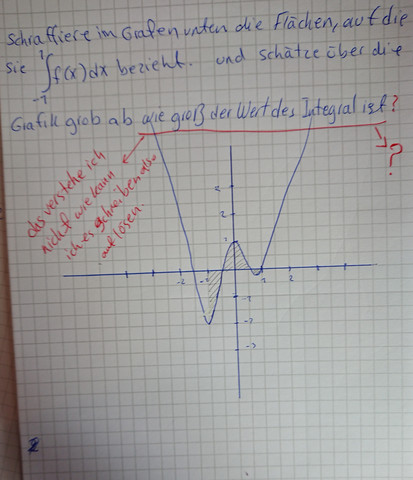 Schraffiere im Grafen unten die Flächen, auf die
sie ∫ f(x)dx bezieht. und schätze über die
1
-1
Grafik grob ab wie groß der Wert des Integral ist?
das verstehe ich
nicht wie kann
ich es schreiben also
auflösen.
?
2
1
-2 -1 1 2
-1
-2
-3
2